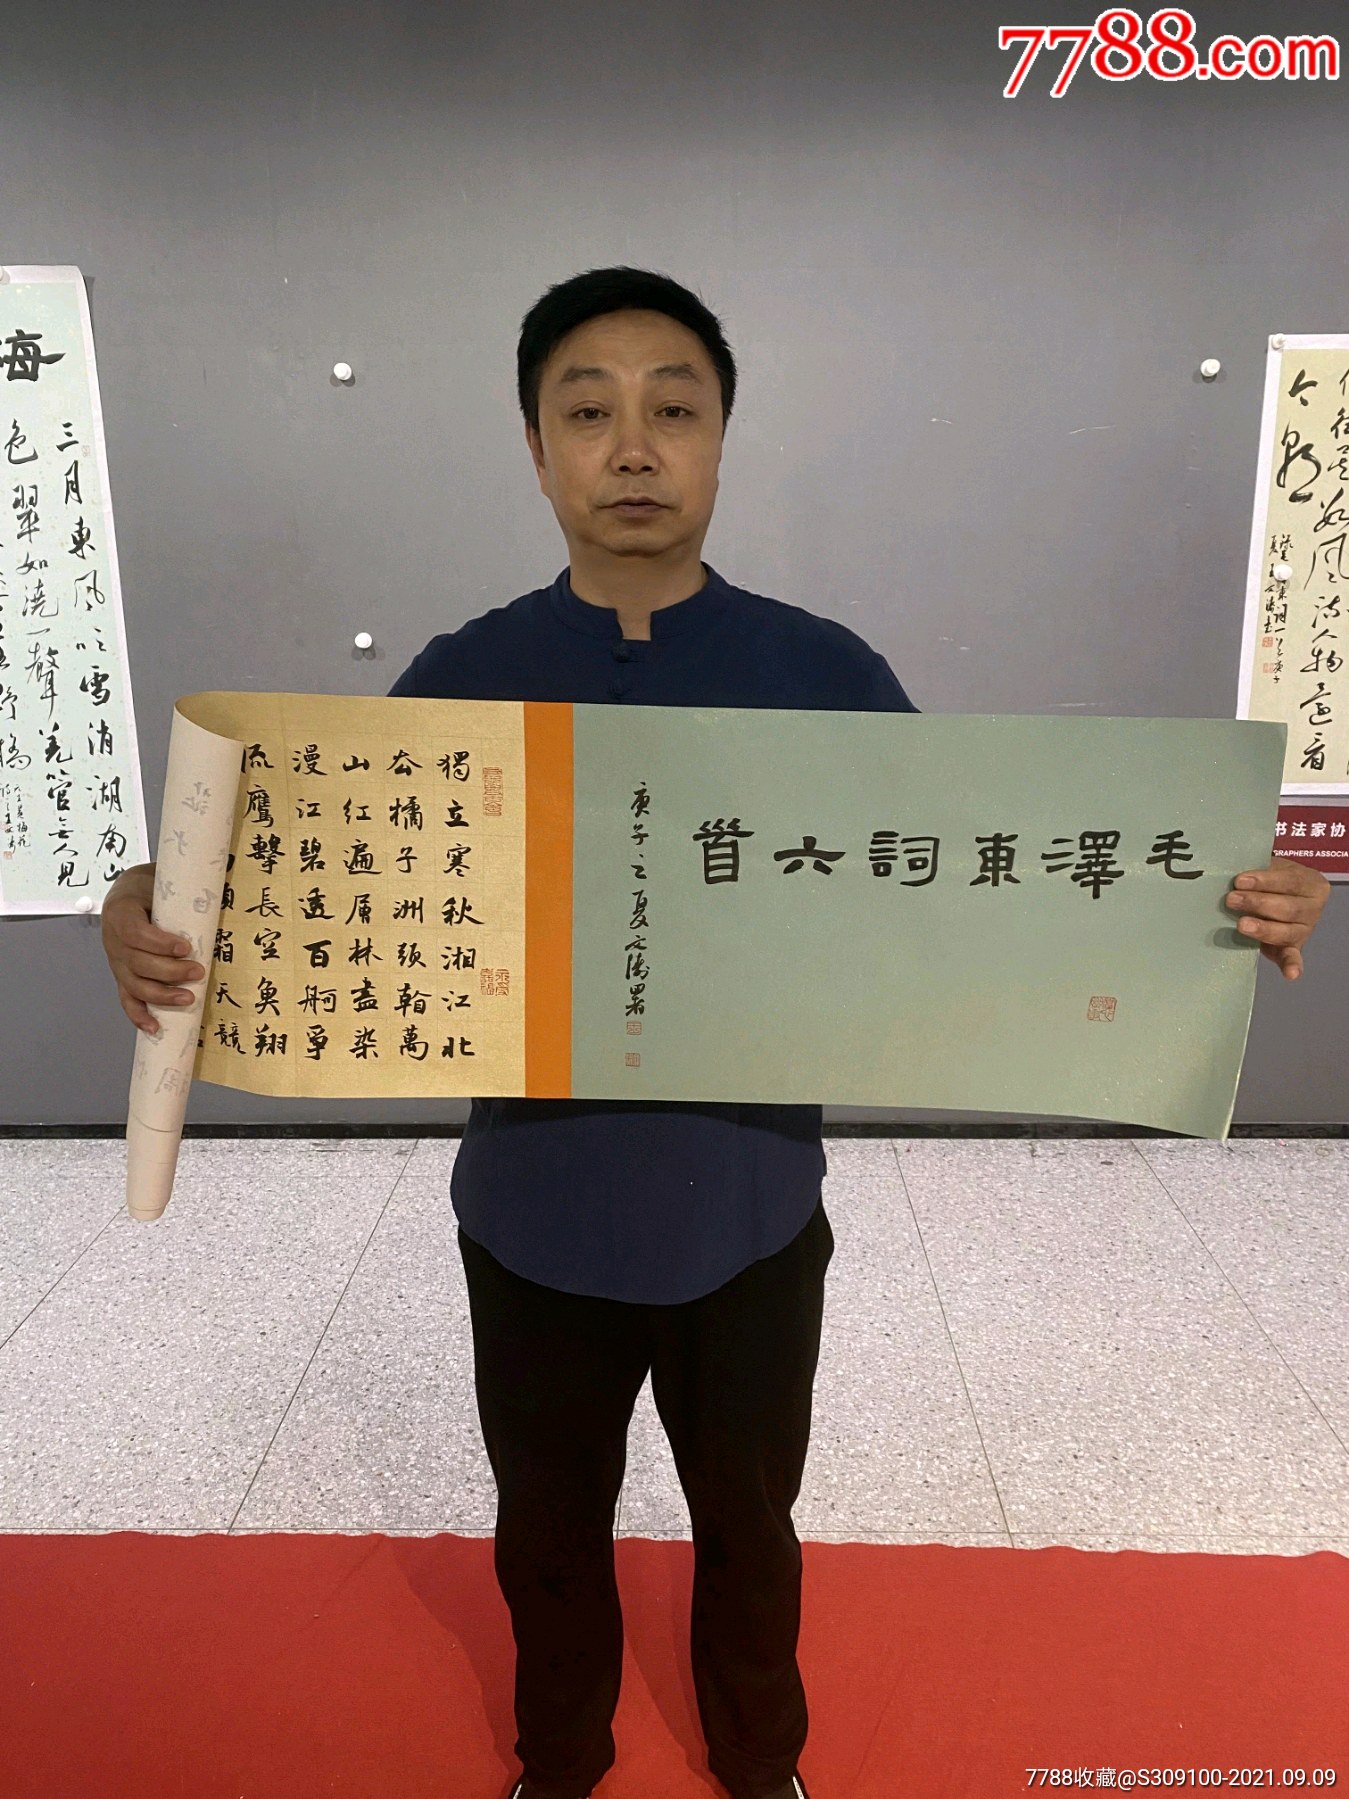 7788.com
毛澤東詞六首
庚子之夏文濤署
獨立寒秋湘江北
去橘子洲頭看萬
山紅遍層林盡染
漫江碧透百舸爭
流鷹擊長空魚翔
霜天競
梅
三月東風吹雪消湖南山
色翠如澆一聲羌管無人見
數風流人物還看
今朝
书法家协
GRAPHERS ASSOCIA
7788收藏@S309100-2021.09.09